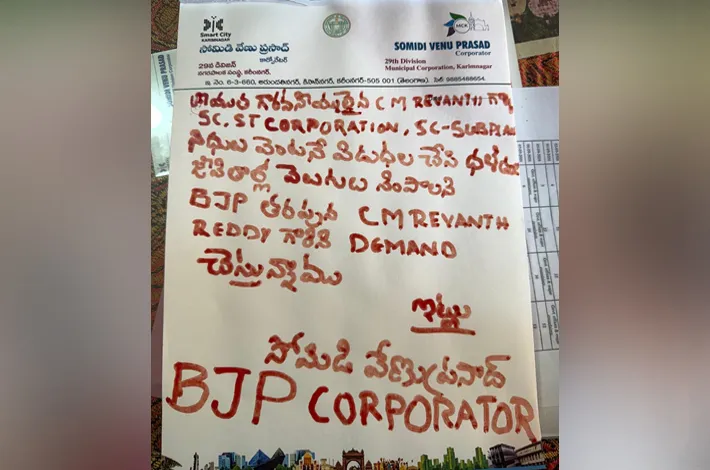 Smart City
KARIMNAGAR
సోమిడి వేణు ప్రసాద్
కార్పొరేటర్
29వ డివిజన్
నగరపాలక సంస్థ, కరీంనగర్.
MCK
SOMIDI VENU PRASAD
Corporator
29th Division
Municipal Corporation, Karimnagar
ఇ. నెం. 6-3-660, అరుందతినగర్, కిసాన్‌నగర్, కరీంనగర్-505 001 (తెలంగాణ). సెల్: 9885488654.
గౌరవనీయులైన CM REVANTH గారు
SC, ST CORPORATION, SC-SUBPLAN
నిధులు వెంటనే విడుదల చేసి దళితుల
జీవితాల్లో వెలుగులు నింపాలని
BJP తరపున CM REVANTH
REDDY గారిని DEMAND
చేస్తున్నాము
ఇట్లు
సోమిడి వేణుప్రసాద్
BJP CORPORATOR